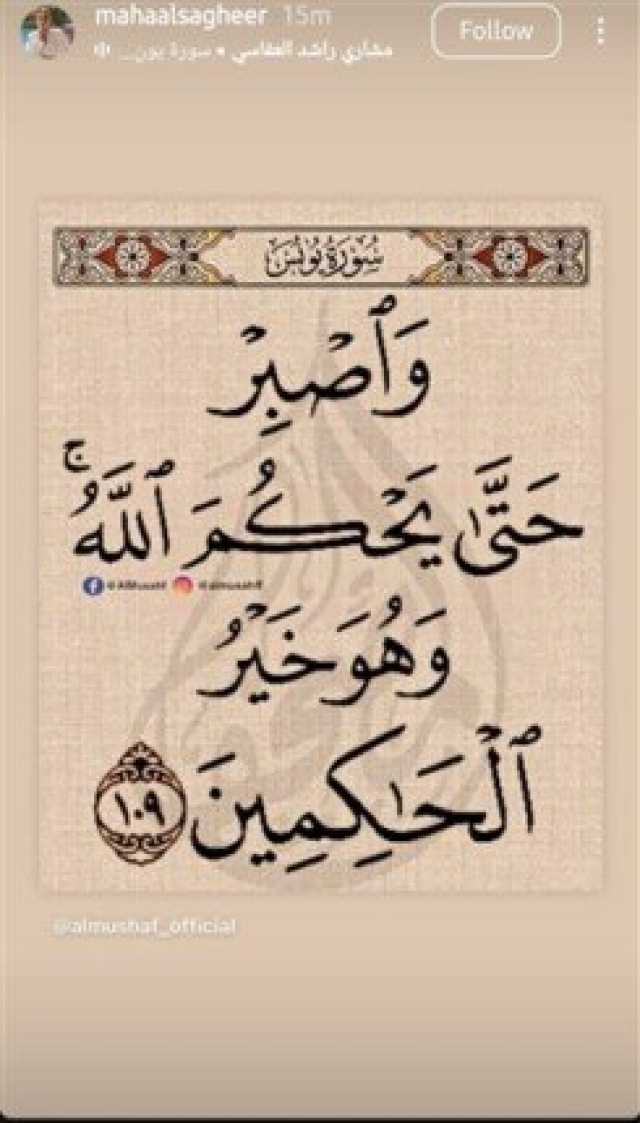 mahaalsagheer 15m
Follow
مشاري راشد العفاسي • سورة يون...
سُورَةُ يُونُسَ
وَٱصۡبِرۡ
حَتَّىٰ يَحۡكُمَ ٱللَّهُۚ
وَهُوَ خَيۡرُ
ٱلۡحَٰكِمِينَ ١٠٩
@almushaf_official